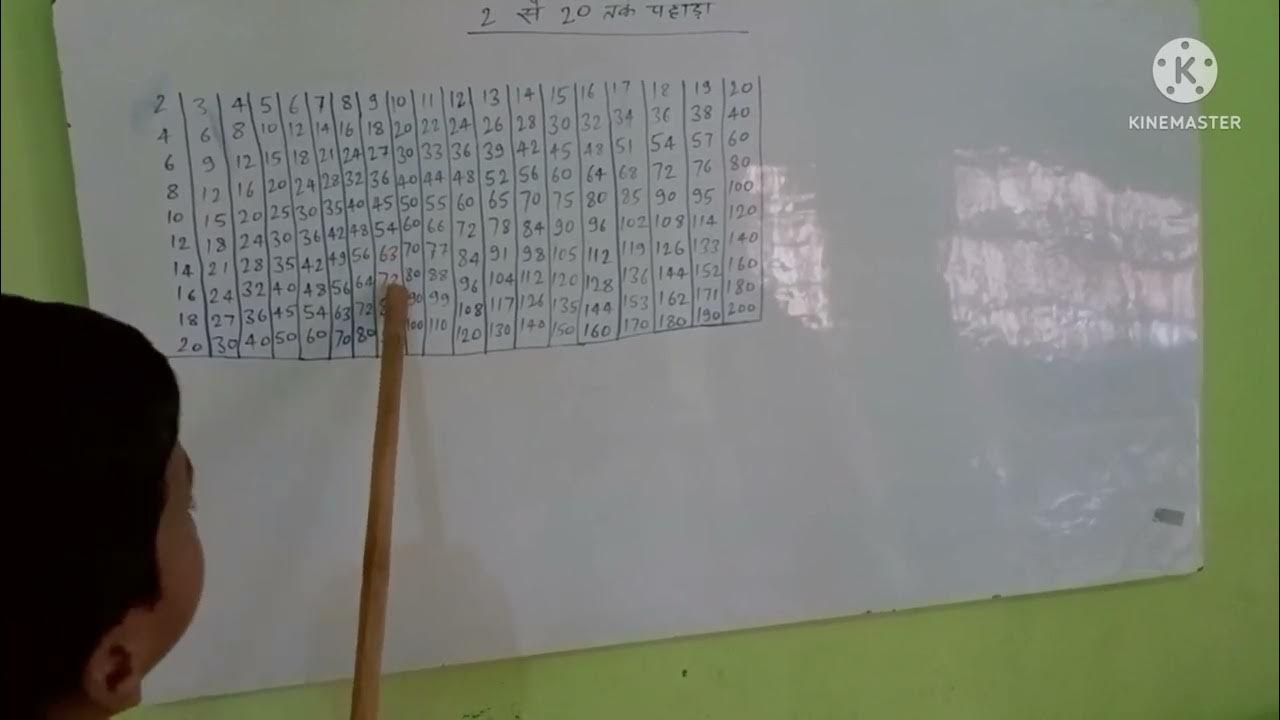 2 से 20 तक पहाड़ा
K
KINEMASTER
2 3 4 5 6 7 8 9 10 11 12 13 14 15 16 17 18 19 20
4 6 8 10 12 14 16 18 20 22 24 26 28 30 32 34 36 38 40
6 9 12 15 18 21 24 27 30 33 36 39 42 45 48 51 54 57 60
8 12 16 20 24 28 32 36 40 44 48 52 56 60 64 68 72 76 80
10 15 20 25 30 35 40 45 50 55 60 65 70 75 80 85 90 95 100
12 18 24 30 36 42 48 54 60 66 72 78 84 90 96 102 108 114 120
14 21 28 35 42 49 56 63 70 77 84 91 98 105 112 119 126 133 140
16 24 32 40 48 56 64 72 80 88 96 104 112 120 128 136 144 152 160
18 27 36 45 54 63 72 90 99 108 117 126 135 144 153 162 171 180
20 30 40 50 60 70 80 100 110 120 130 140 150 160 170 180 190 200